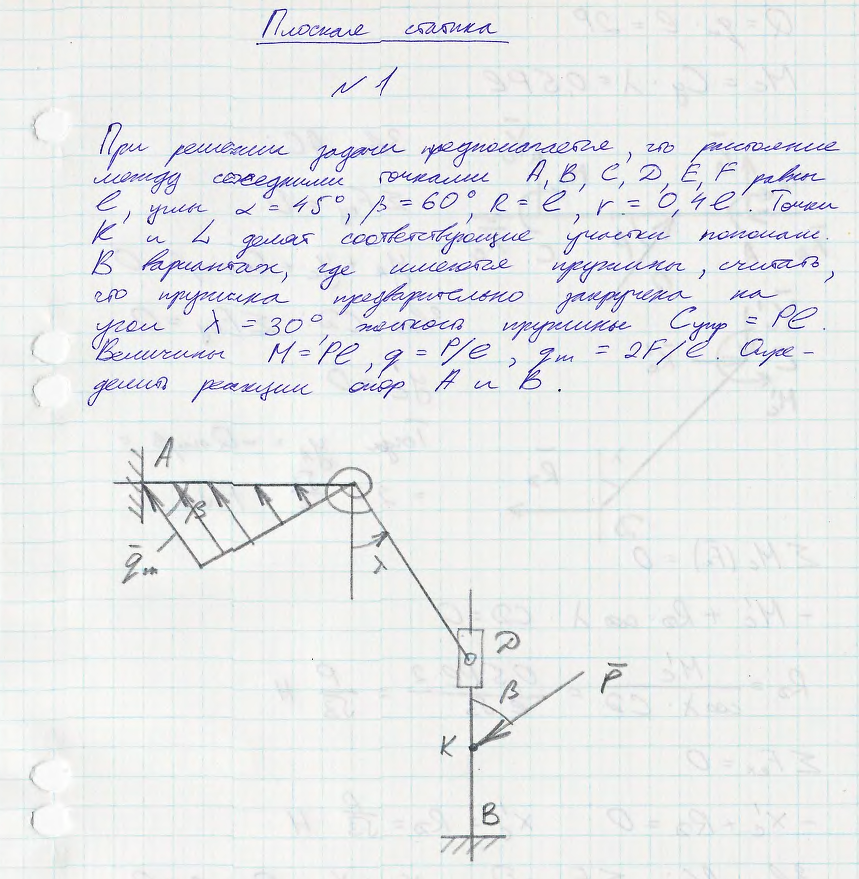 Плоская статика
№ 1
При решении задачи предполагается, что расстояние
между соседними точками A, B, C, D, E, F равны
l, углы α = 45°, β = 60°, R = l, r = 0,4l. Точки
K и L делят соответствующие участки пополам.
В вариантах, где имеются пружины, считать,
что пружина предварительно закручена на
угол λ = 30°, жесткость пружины Cупр = Pl.
Величины M = Pl, q = P/l, qm = 2F/l. Опре-
делить реакции опор A и B.
A
β
q̄m
λ
D
β
P̄
K
B